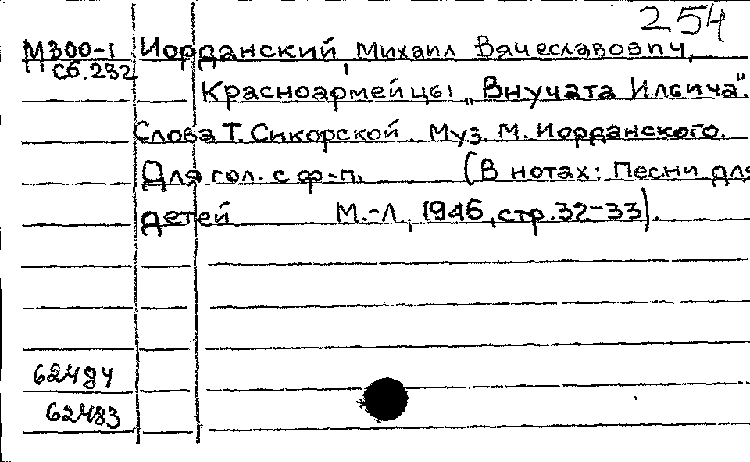 254
М300-1 Иорданский, Михаил Вячеславович,
Сб.232
Красноармейцы „Внучата Ильича".
Слова Т. Сикорской. Муз. М. Иорданского.
Для гол. с ф-п. (В нотах: Песни для
детей М.-Л, 1946, стр. 32-33).
62484
62483